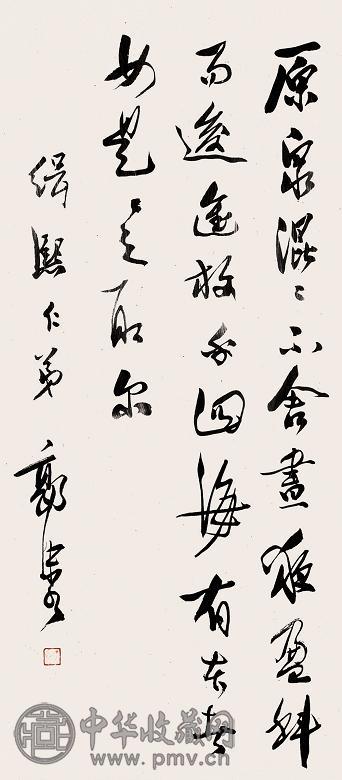 原泉混々不舍晝夜盈科
而後進放乎四海有本者
如是々之取尔
緝熙仁弟 郭
中华收藏网
www.pmv.cn